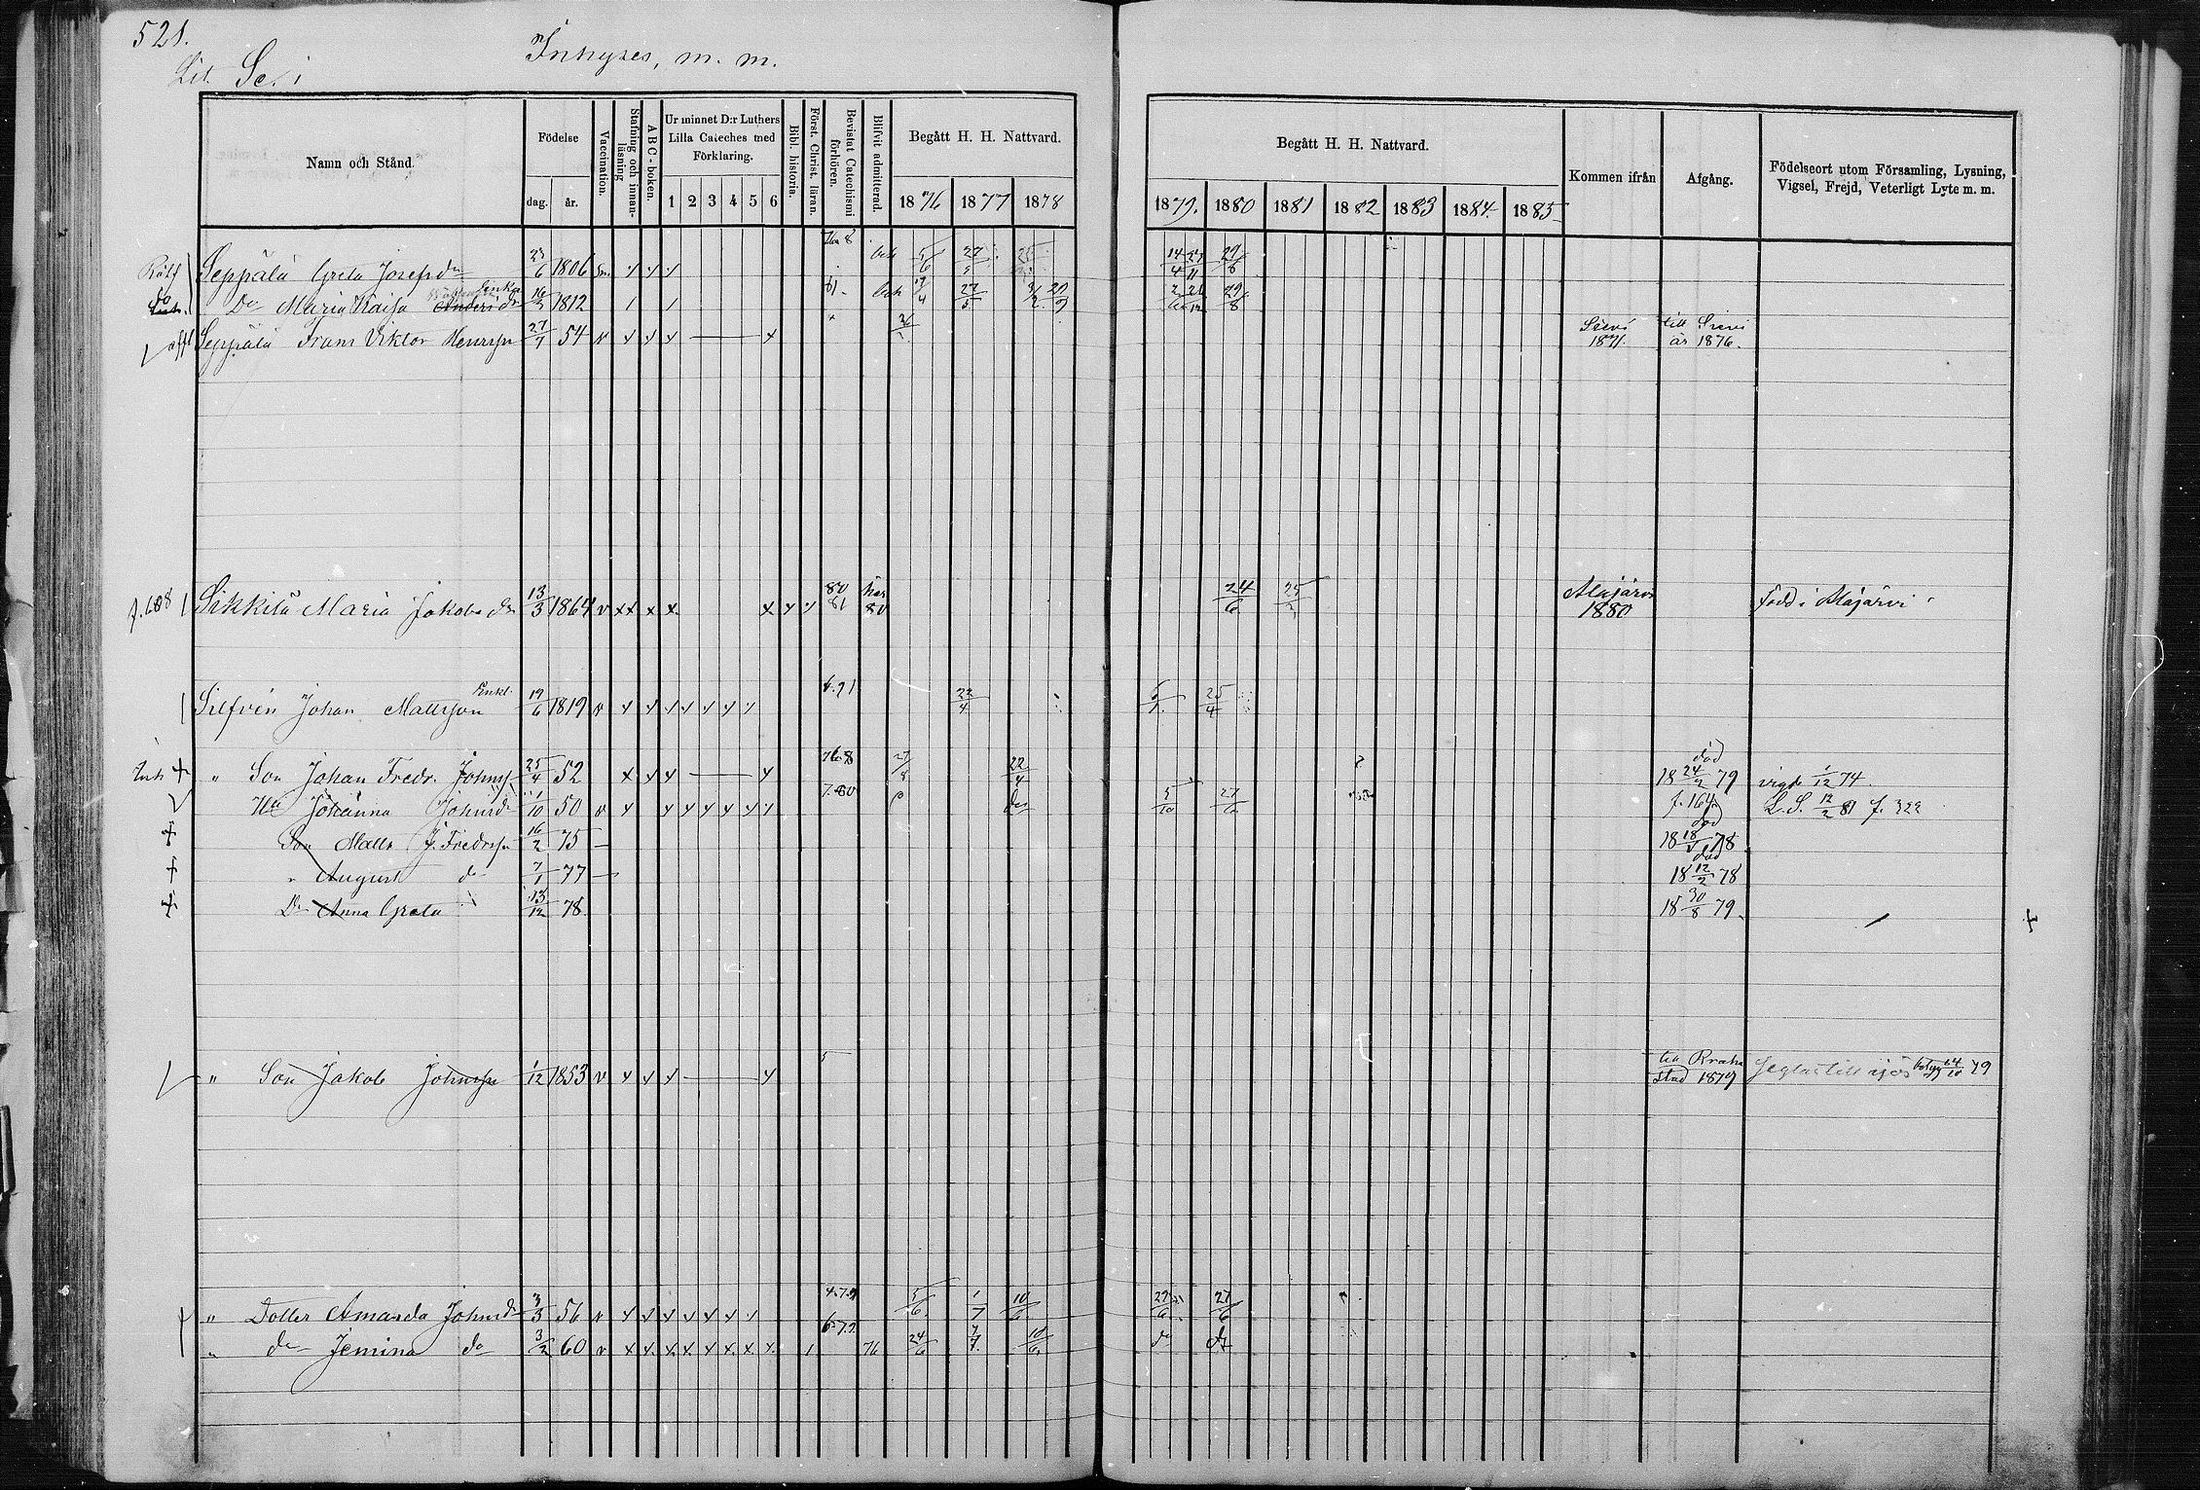 521.
Lit. Se. i
Inhyses, m. m.
Namn och Stånd.
Födelse
dag. år.
Vaccination.
Stafning och innanläsning
ABC-boken.
Ur minnet D:r Luthers Lilla Cateches med Förklaring.
1 2 3 4 5 6
Bibl. historia.
Först. Christ. läran.
Bevistat Catechismi förhören.
Blifvit admitterad.
Begått H. H. Nattvard.
1876 1877 1878
Begått H. H. Nattvard.
1879. 1880 1881 1882 1883 1884 1885
Kommen ifrån
Afgång.
Födelseort utom Församling, Lysning, Vigsel, Frejd, Veterligt Lyte m. m.
Seppälä Greta Josefsdr 23/6 1806 27/5 29/8
Do Maria Kaisa Enka 16/3 1812 27/5 29/8
Seppälä Frans Viktor Henrsson 27/1 54 v Sievi 1871. till Sievi år 1876.
f. 608 Sikkilä Maria Jakobsdr 13/3 1864 v xx x x x 80 81 här 80 24/6 25/2 Alajärvi 1880 Född i Alajärvi
Silfvén Johan Mattsson Enkl. 19/6 1819 v 22/4 25/4
Inh + " Son Johan Fredr. Johnss 25/4 52 76.8 27/8 22/4 död 18 24/2 79 vigde 1/12 74.
Hu Johanna Johnsdr 1/10 50 v 7.80 do 5/10 27/6 f. 164 L.S. 12/2 81 f. 322
+ Son Matts J. Fredrssn 16/2 75 död 18 18/1 78
+ " August do 7/1 77 död 18 12/2 78
+ Dr Anna Greta 13/12 78 18 30/8 79.
" Son Jakob Johnsson 1/12 1853 v till Brahestad 1879 Seglar till sjös betyg 14/10 79
" Dotter Amanda Johnsdr 3/3 56 v 4.7.9 5/6 1/7 10/6 22/6 27/6
" do Jemina do 3/2 60 v 6.7.9 76 24/6 7/7 10/6 do do